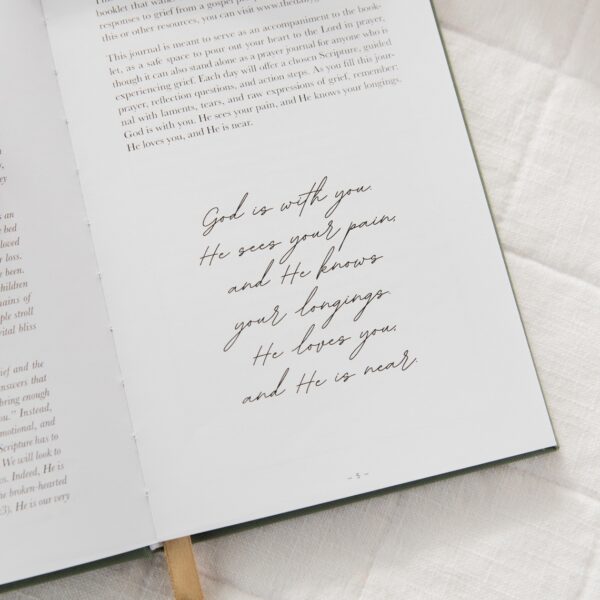 an
bed
loved
loss.
been.
children
mains of
ple stroll
vital bliss
ief and the
answers that
bring enough
ou.” Instead,
motional, and
Scripture has to
We will look to
s. Indeed, He is
he broken-hearted
3). He is our very
booklet that wal
responses to grief from a gospel
this or other resources, you can visit
This journal is meant to serve as an accompaniment to the book-
let, as a safe space to pour out your heart to the Lord in prayer,
though it can also stand alone as a prayer journal for anyone who is
experiencing grief. Each day will offer a chosen Scripture, guided
prayer, reflection questions, and action steps. As you fill this jour-
nal with laments, tears, and raw expressions of grief, remember:
God is with you. He sees your pain, and He knows your longings.
He loves you, and He is near.
God is with you.
He sees your pain,
and He knows
your longings.
He loves you,
and He is near.
– 5 –